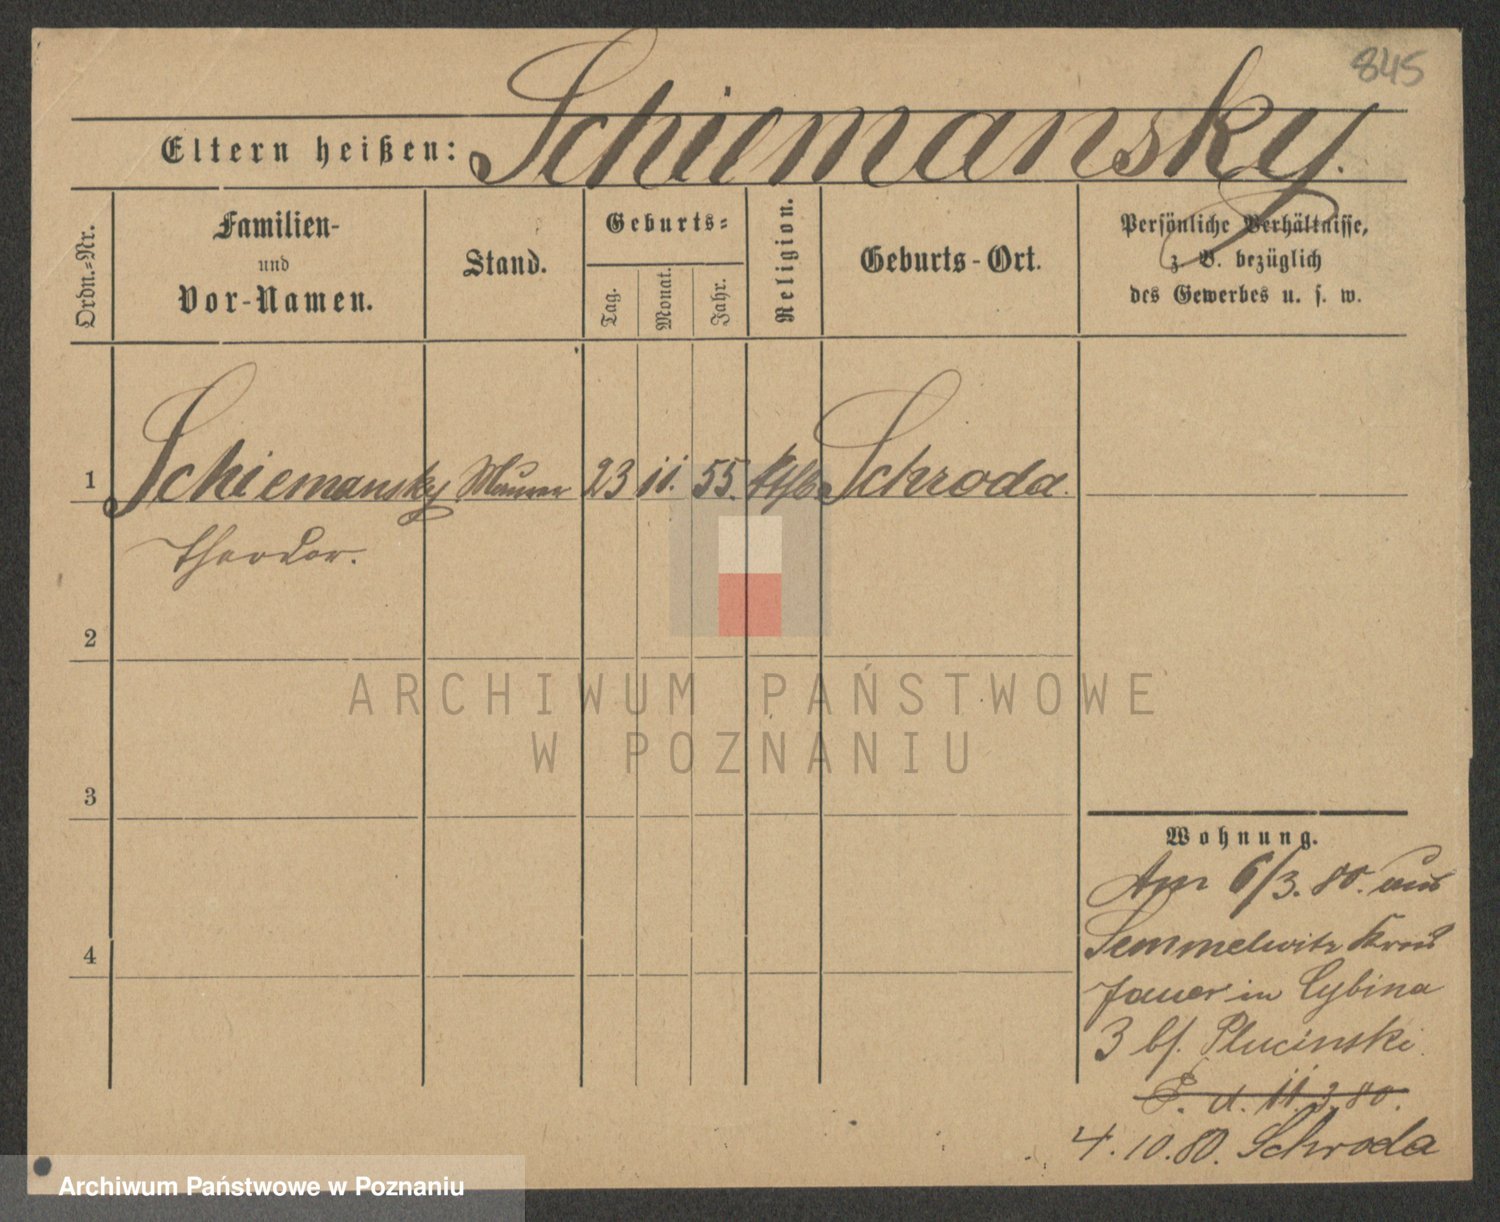 845
Eltern heißen: Schiemansky.
Ordn.-Nr.
Familien-
und
Vor-Namen.
Stand.
Geburts-
Tag.
Monat.
Jahr.
Religion.
Geburts-Ort.
Persönliche Verhältnisse,
z. B. bezüglich
des Gewerbes u. s. w.
1 Schiemansky Maurer 23 11. 55. kth Schroda.
Theodor.
2
3
4
Wohnung.
Am 6/3. 80. aus
Semmelwitz Kreis
Jauer in Cybina
3 bf. Plucinski.
P. d. 11.3.80.
4.10.80. Schroda
ARCHIWUM PAŃSTWOWE
W POZNANIU
Archiwum Państwowe w Poznaniu